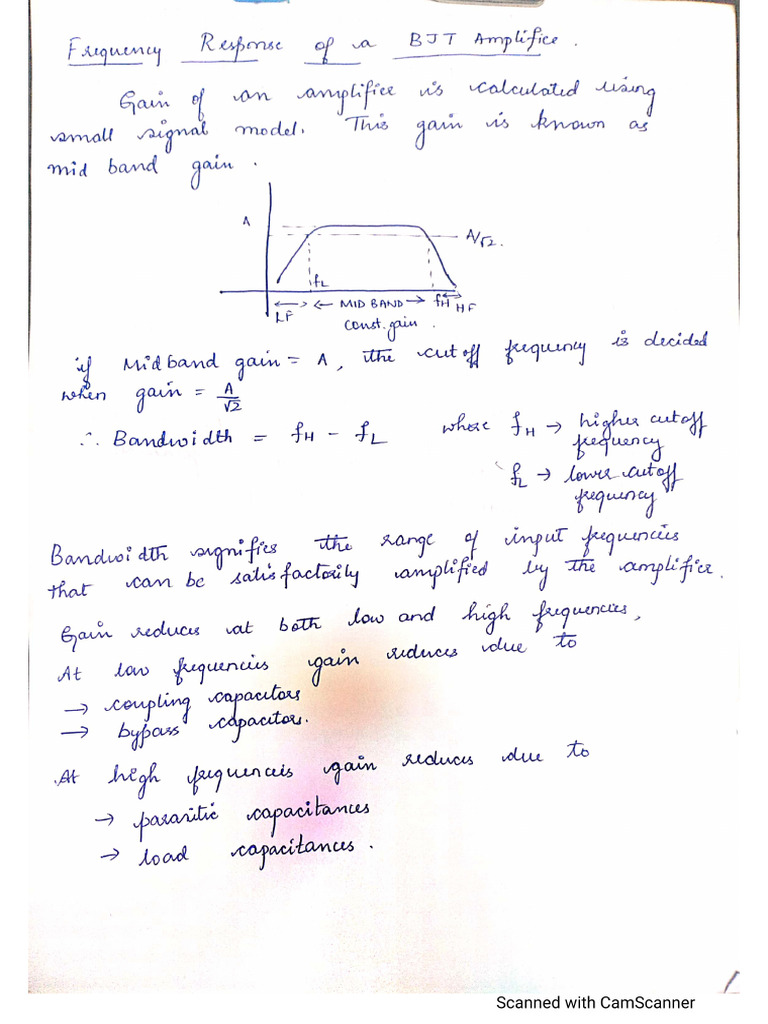 Frequency Response of a BJT Amplifier.
Gain of an amplifier is calculated using
small signal model. This gain is known as
mid band gain.
A
A/√2.
fL
LF
MID BAND
fH HF
const. gain.
if Midband gain = A, the cutoff frequency is decided
when gain = A/√2
∴ Bandwidth = fH - fL where fH → higher cutoff
frequency
fL → lower cutoff
frequency
Bandwidth signifies the range of input frequencies
that can be satisfactorily amplified by the amplifier.
Gain reduces at both low and high frequencies,
At low frequencies gain reduces due to
→ coupling capacitors
→ bypass capacitors.
At high frequencies gain reduces due to
→ parasitic capacitances
→ load capacitances.
Scanned with CamScanner